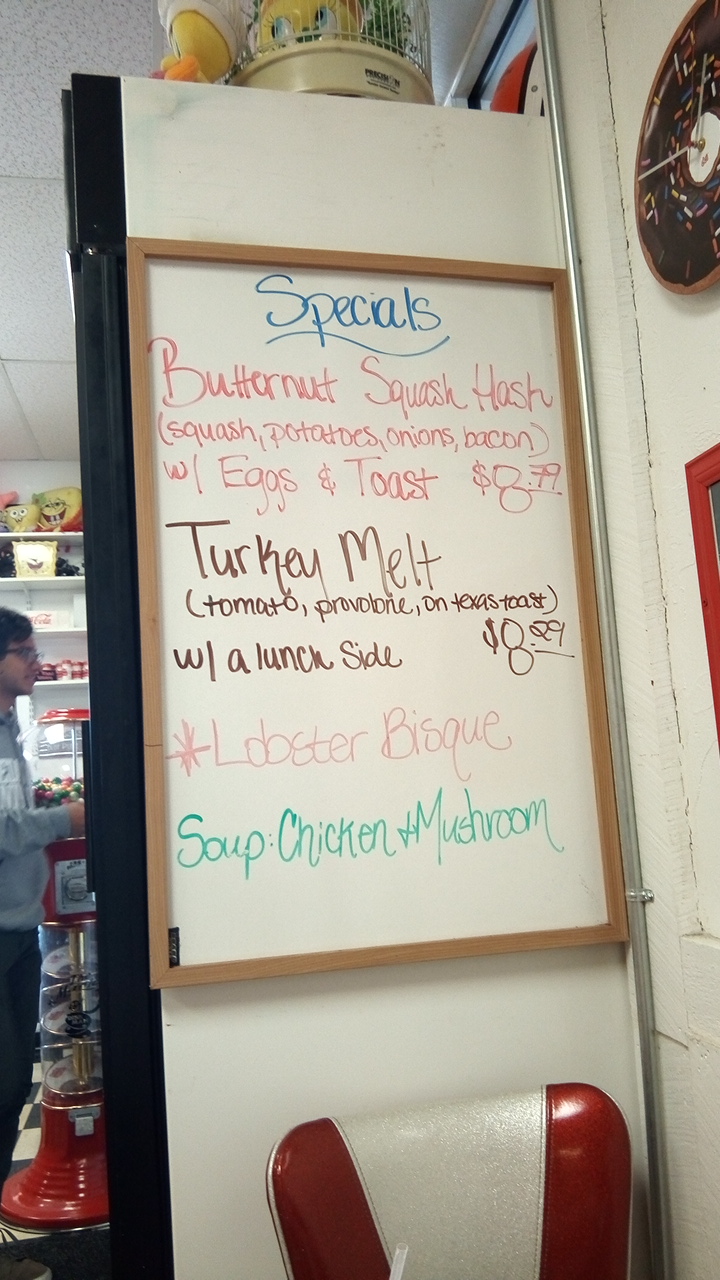 PRECISION
Specials
Butternut Squash Hash
(squash, potatoes, onions, bacon)
w/ Eggs & Toast $8.79
Turkey Melt
(tomato, provolone, on texas toast)
w/ a lunch Side $8.29
*Lobster Bisque
Soup: Chicken & Mushroom